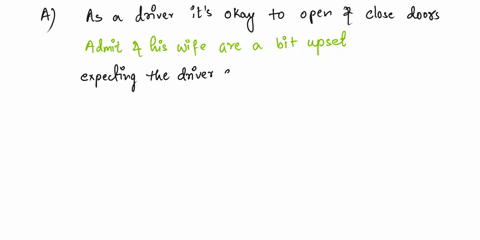 A) As a driver it's okay to open & close doors
Admit & his wife are a bit upset
expecting the driver